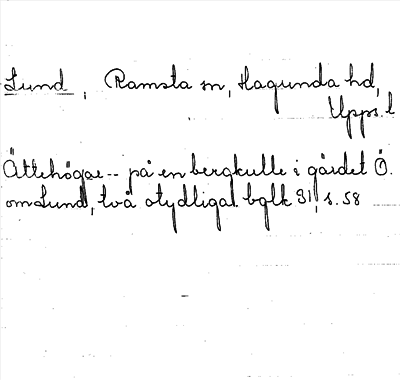 Lund, Ramsta sn, Hagunda hd,
Upps. l
Ättehögar -- på en bergkulle i gärdet Ö.
om Lund, två otydliga. bglk 31, s. 58